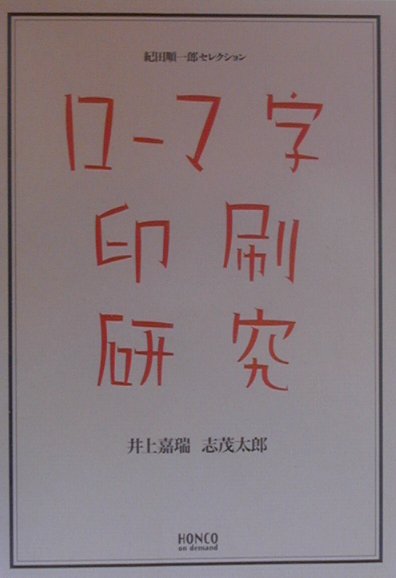 紀田順一郎セレクション
ローマ字
印刷
研究
井上嘉瑞 志茂太郎
HONCO
on demand